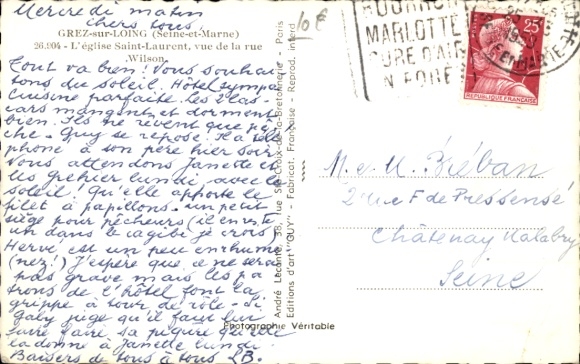 Mercredi matin
chers tous,
GREZ-sur-LOING (Seine-et-Marne)
26.204 - L'église Saint-Laurent, vue de la rue
Wilson.
Tout va bien! Vous souhai-
tons du soleil. Hôtel sympa
Cuisine parfaite. Les
cars mangent et dorment
bien. Ils ne rêvent que pê-
che. Guy se repose. Il a télé-
phoné à son père hier soir.
Vous attendons Janette et
les lundi, avec le
soleil! Qu'elle apporte le
filet à papillons. un petit
siège pour pêcheurs (il en reste
un dans le cagibi je crois)
Hervé est un peu enrhumé
(nez!) J'espère que ce ne sera
pas grave mais les pa
trons de l'hôtel ont la
grippe à tour de rôle. Si
Gaby juge qu'il faut lui
faire faire sa piqûre qu'elle
la donne à Janette lundi.
Baisers de tous à tous
André Leconte, 38, rue Ste-Croix-de-la-Bretonnerie - Paris
Editions d'art "GUY" - Fabricat. Française - Reprod. interd.
Photographie Véritable
10 €
MARLOTTE
CURE D'AIR
EN FORET
25F
REPUBLIQUE FRANÇAISE
M. et M. Bréban
2 rue F de Pressensé
Châtenay Malabry
Seine